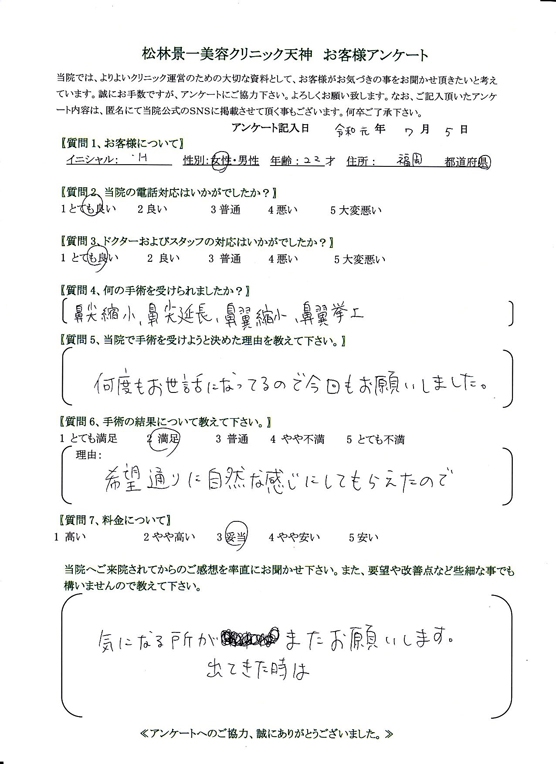 松林景一美容クリニック天神　お客様アンケート
当院では、よりよいクリニック運営のための大切な資料として、お客様がお気づきの事をお聞かせ頂きたいと考え
ています。誠にお手数ですが、アンケートにご協力下さい。よろしくお願い致します。なお、ご記入頂いたアンケ
ート内容は、匿名にて当院公式のSNSに掲載させて頂く事もございます。何卒ご了承下さい。
アンケート記入日　令和元年　7月　5日
【質問1、お客様について】
イニシャル：H　性別：女性・男性　年齢：22才　住所：福岡　都道府県
【質問2、当院の電話対応はいかがでしたか？】
1 とても良い　2 良い　3 普通　4 悪い　5 大変悪い
【質問3、ドクターおよびスタッフの対応はいかがでしたか？】
1 とても良い　2 良い　3 普通　4 悪い　5 大変悪い
【質問4、何の手術を受けられましたか？】
鼻尖縮小、鼻尖延長、鼻翼縮小、鼻翼挙上
【質問5、当院で手術を受けようと決めた理由を教えて下さい。】
何度もお世話になってるので今回もお願いしました。
【質問6、手術の結果について教えて下さい。】
1 とても満足　2 満足　3 普通　4 やや不満　5 とても不満
理由：
希望通りに自然な感じにしてもらえたので
【質問7、料金について】
1 高い　2 やや高い　3 妥当　4 やや安い　5 安い
当院へご来院されてからのご感想を率直にお聞かせ下さい。また、要望や改善点など些細な事でも
構いませんので教えて下さい。
気になる所が　またお願いします。
出てきた時は
≪アンケートへのご協力、誠にありがとうございました。≫